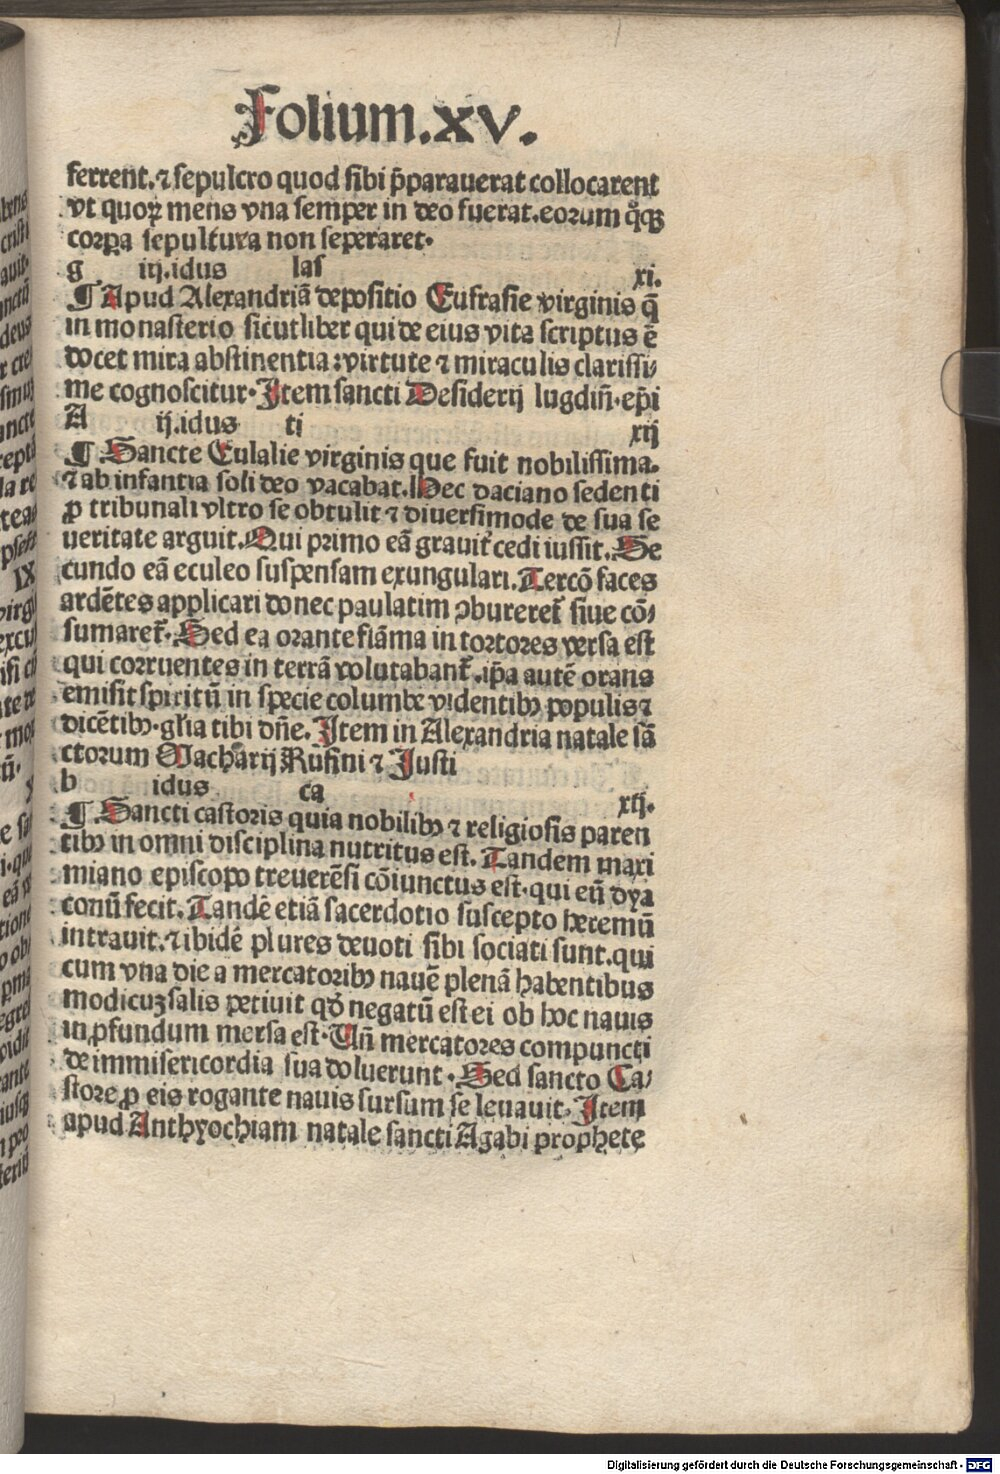 Folium.xv.
ferrent.⁊ sepulcro quod sibi p̄parauerat collocarent
vt quoꝝ mens vna semper in deo fuerat.eorum q̊qꝫ
corꝑa sepultura non seperaret.
g iij.idus las xi.
¶ Apud Alexandriā depositio Eufrasie virginis q̄
in monasterio sicut liber qui de eius vita scriptus ē
docet mira abstinentia:virtute ⁊ miraculis clarissi/
me cognoscitur. Item sancti Desiderij lugdiñ.ep̄i
A ij.idus ti xij
¶ Sancte Eulalie virginis que fuit nobilissima.
⁊ ab infantia soli deo vacabat. Hec daciano sedenti
ꝓ tribunali vltro se obtulit ⁊ diuersimode de sua se
ueritate arguit. Qui primo eā grauit̄ cedi iussit. Se
cundo eā eculeo suspensam exungulari. Tercō faces
ardētes applicari donec paulatim ↄbureret̄ siue cō/
sumaret̄. Sed ea orante flāma in tortores versa est
qui corruentes in terrā volutabant̄.ip̄a autē orans
emisit spiritū in specie columbe videntibꝫ populis ⁊
dicētibꝫ.gl̄ia tibi dn̄e. Item in Alexandria natale sā
ctorum Macharij Rufini ⁊ Justi
b idus ca xiij.
¶ Sancti castoris quia nobilibꝫ ⁊ religiosis paren
tibꝫ in omni disciplina nutritus est. Tandem maxi
miano episcopo treuerēsi cōiunctus est.qui eū dya
conū fecit. Tandē etiā sacerdotio suscepto heremū
intrauit.⁊ ibidē plures deuoti sibi sociati sunt.qui
cum vna die a mercatoribꝫ nauē plenā habentibus
modicuꝫ salis petiuit qd̄ negatū est ei ob hoc nauis
in ꝓfundum mersa est. Vn̄ mercatores compuncti
de immisericordia sua doluerunt. Sed sancto Ca/
store ꝓ eis rogante nauis sursum se leuauit. Item
apud Anthyochiam natale sancti Agabi prophete
Digitalisierung gefördert durch die Deutsche Forschungsgemeinschaft - DFG